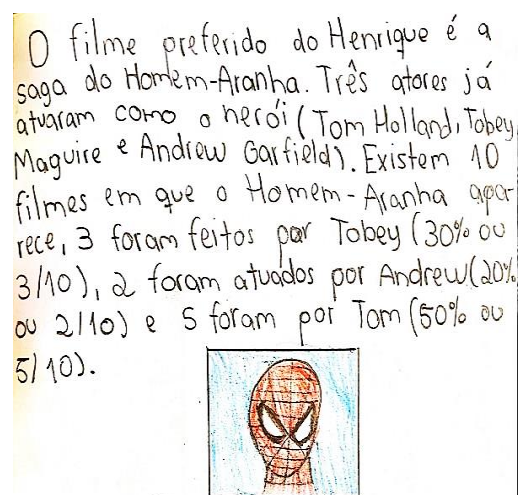 O filme preferido do Henrique é a
saga do Homem-Aranha. Três atores já
atuaram como o herói (Tom Holland, Tobey
Maguire e Andrew Garfield). Existem 10
filmes em que o Homem-Aranha apa-
rece, 3 foram feitos por Tobey (30% ou
3/10), 2 foram atuados por Andrew (20%
ou 2/10) e 5 foram por Tom (50% ou
5/10).